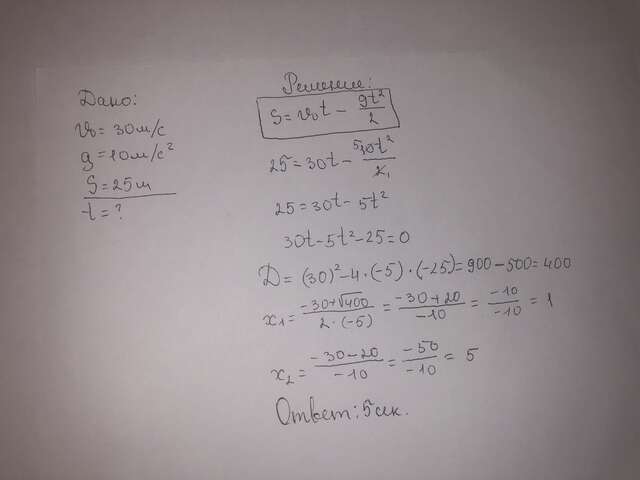 Дано:
v₀ = 30м/с
g = 10м/с²
S = 25м
t = ?
Решение:
S = v₀t - gt²/2
25 = 30t - 5 10t²/2 1
25 = 30t - 5t²
30t - 5t² - 25 = 0
D = (30)² - 4·(-5)·(-25) = 900 - 500 = 400
x₁ = -30+√400/2·(-5) = -30+20/-10 = -10/-10 = 1
x₂ = -30-20/-10 = -50/-10 = 5
Ответ: 5 сек.